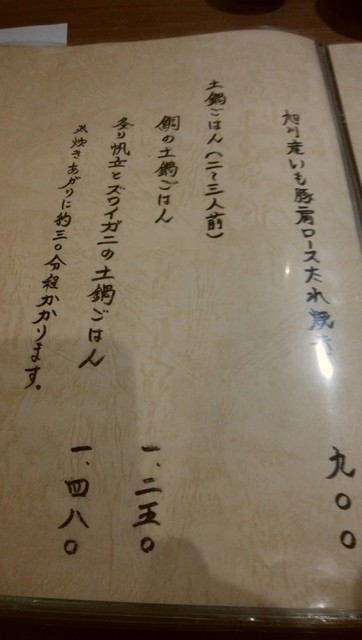 旭川産いも豚肩ロースたれ焼き
九〇〇
土鍋ごはん(二〜三人前)
鯛の土鍋ごはん
一、二五〇
炙り帆立とズワイガニの土鍋ごはん
一、四八〇
※炊きあがりに約三〇分程かかります。